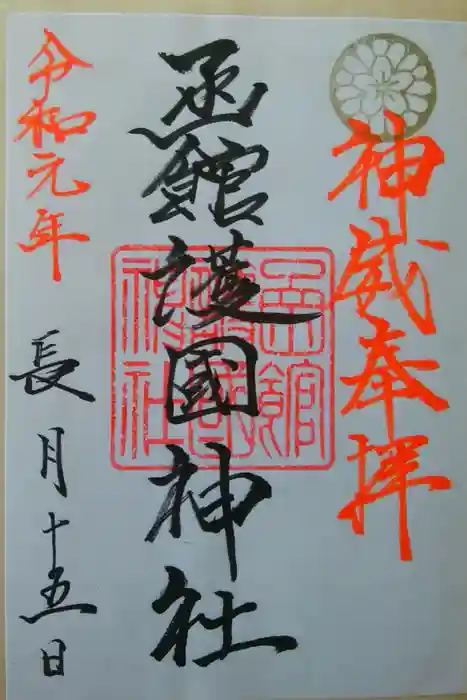 神威奉拝
函館護國神社
函館
護國
神社
令和元年
長月十五日